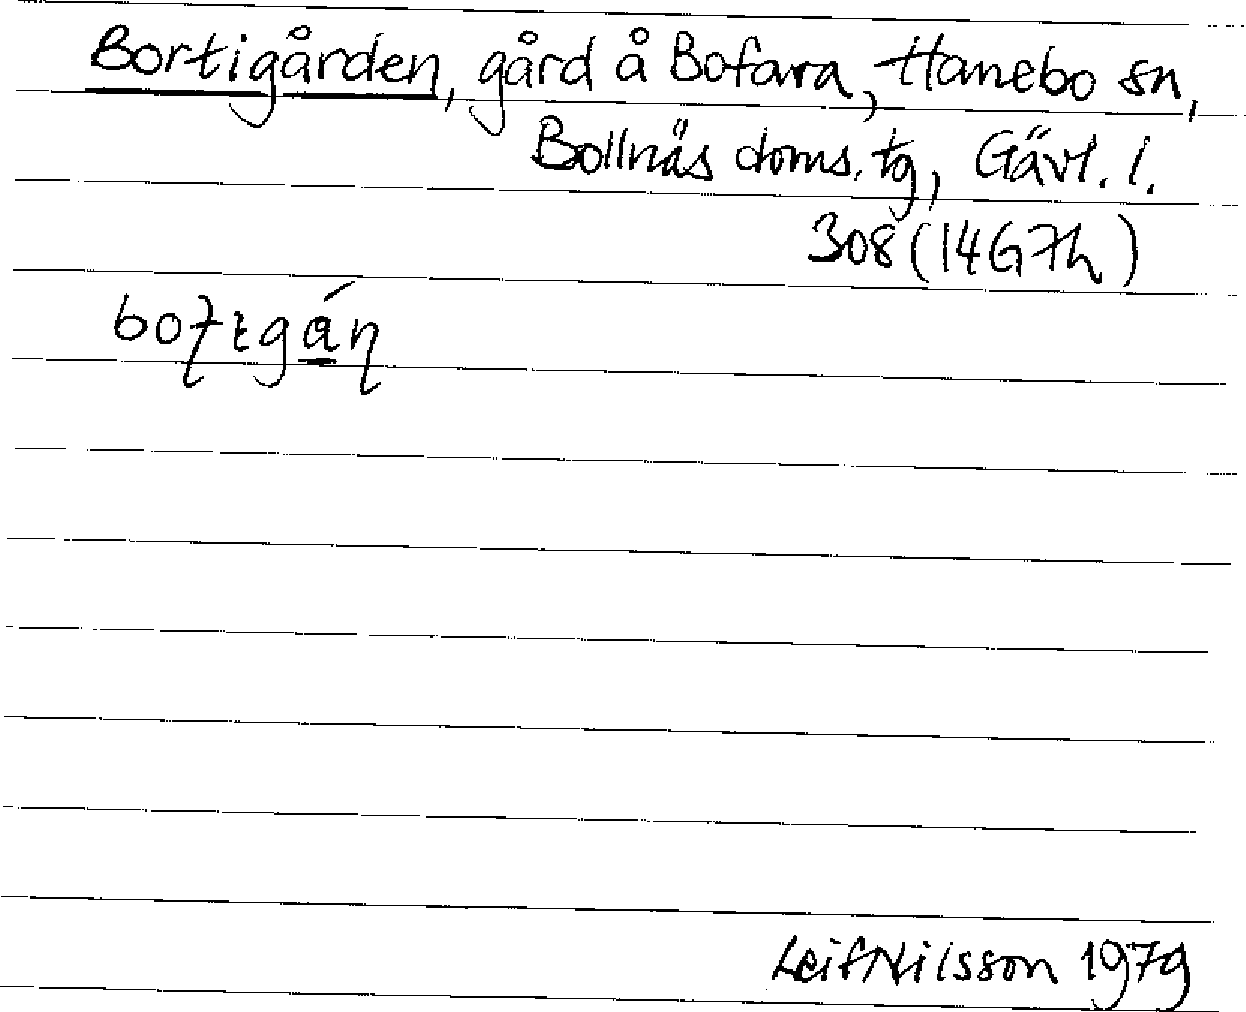 Bortigården, gård å Bofara, Hanebo sn,
Bollnäs doms. tg, Gävl. l.
308 (14G7h)
Leif Nilsson 1979